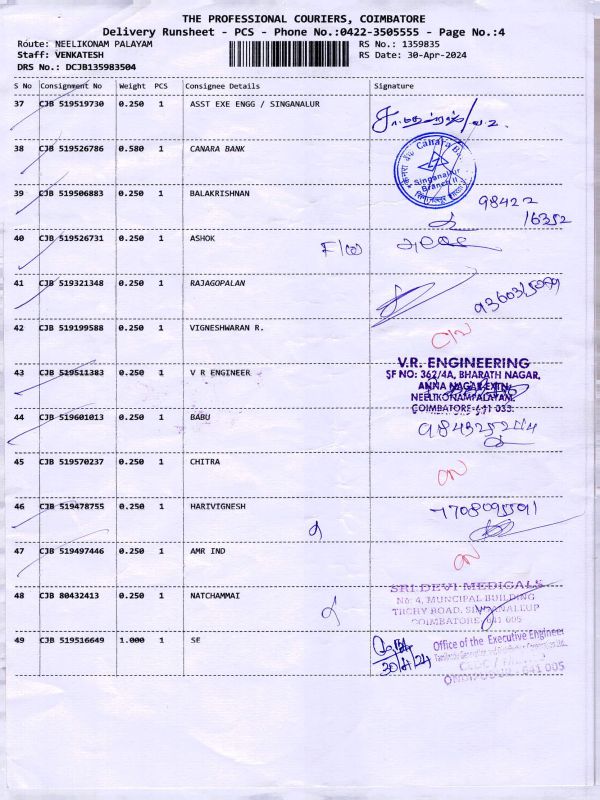 THE PROFESSIONAL COURIERS, COIMBATORE
Delivery Runsheet - PCS - Phone No.:0422-3505555 - Page No.:4
Route: NEELIKONAM PALAYAM RS No.: 1359835
Staff: VENKATESH RS Date: 30-Apr-2024
DRS No.: DCJB135983504
S No Consignment No Weight PCS Consignee Details Signature
37 CJB 519519730 0.250 1 ASST EXE ENGG / SINGANALUR
38 CJB 519526786 0.580 1 CANARA BANK
Canara
Singanallur
Branch II
39 CJB 519506883 0.250 1 BALAKRISHNAN
98422
16352
40 CJB 519526731 0.250 1 ASHOK
41 CJB 519321348 0.250 1 RAJAGOPALAN
42 CJB 519199588 0.250 1 VIGNESHWARAN R.
43 CJB 519511383 0.250 1 V R ENGINEER
V.R. ENGINEERING
SF NO: 362/4A, BHARATH NAGAR,
ANNA NAGAR EXTN.
NEELIKONAMPALAYAM,
COIMBATORE-641 033.
44 CJB 519601013 0.250 1 BABU
45 CJB 519570237 0.250 1 CHITRA
46 CJB 519478755 0.250 1 HARIVIGNESH
7708095591
47 CJB 519497446 0.250 1 AMR IND
48 CJB 80432413 0.250 1 NATCHAMMAI
SRI DEVI MEDICALS
No: 4, MUNCIPAL BUILDING
TRICHY ROAD, SINGANALLUP
COIMBATORE 641 005
49 CJB 519516649 1.000 1 SE
30/4/24
Office of the Executive Engineer
641 005